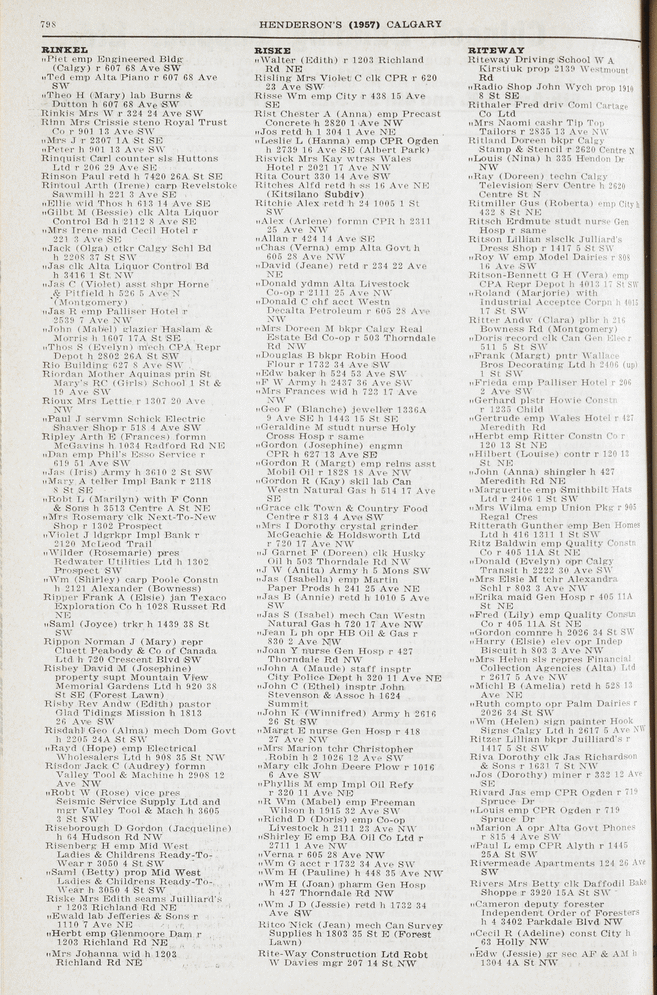 798
HENDERSON'S (1957) CALGARY
RINKEL
"Piet emp Engineered Bldg
(Calgy) r 607 68 Ave SW
"Ted emp Alta Piano r 607 68 Ave
SW
"Theo H (Mary) lab Burns &
Dutton h 607 68 Ave SW
Rinkis Mrs W r 324 24 Ave SW
Rinn Mrs Crissie steno Royal Trust
Co r 901 13 Ave SW
"Mrs J r 2307 1A St SE
"Peter h 901 13 Ave SW
Rinquist Carl counter sls Huttons
Ltd r 206 29 Ave SE
Rinson Paul retd h 7420 26A St SE
Rintoul Arth (Irene) carp Revelstoke
Sawmill h 221 3 Ave SE
"Ellie wid Thos h 613 14 Ave SE
"Gilbt M (Bessie) clk Alta Liquor
Control Bd h 2112 8 Ave SE
"Mrs Irene maid Cecil Hotel r
221 3 Ave SE
"Jack (Olga) ctkr Calgy Schl Bd
h 2208 37 St SW
"Jas clk Alta Liquor Control Bd
h 3416 1 St NW
"Jas C (Violet) asst shpr Horne
& Pitfield h 526 5 Ave N
(Montgomery)
"Jas R emp Palliser Hotel r
2539 7 Ave NW
"John (Mabel) glazier Haslam &
Morris h 1607 17A St SE
"Thos S (Evelyn) mech CPA Repr
Depot h 2802 26A St SW
Rio Building 627 8 Ave SW
Riordan Mother Aquinas prin St
Mary's RC (Girls) School 1 St &
19 Ave SW
Rioux Mrs Lettie r 1307 20 Ave
NW
"Paul J servmn Schick Electric
Shaver Shop r 518 4 Ave SW
Ripley Arth E (Frances) formn
McGavins h 1034 Radford Rd NE
"Dan emp Phil's Esso Service r
619 51 Ave SW
"Jas (Iris) Army h 3610 2 St SW
"Mary A teller Impl Bank r 2118
8 St SE
"Robt L (Marilyn) with F Conn
& Sons h 3513 Centre A St NE
"Mrs Rosemary clk Next-To-New
Shop r 1302 Prospect
"Violet J ldgrkpr Impl Bank r
2120 McLeod Trail
"Wilder (Rosemarie) pres
Redwater Utilities Ltd h 1302
Prospect SW
"Wm (Shirley) carp Poole Constn
h 2121 Alexander (Bowness)
Ripper Frank A (Elsie) jan Texaco
Exploration Co h 1028 Russet Rd
NE
"Saml (Joyce) trkr h 1439 38 St
SW
Rippon Norman J (Mary) repr
Cluett Peabody & Co of Canada
Ltd h 720 Crescent Blvd SW
Risbey David M (Josephine)
property supt Mountain View
Memorial Gardens Ltd h 920 38
St SE (Forest Lawn)
Risby Rev Andw (Edith) pastor
Glad Tidings Mission h 1813
26 Ave SW
Risdahl Geo (Alma) mech Dom Govt
h 2205 24A St SW
"Rayd (Hope) emp Electrical
Wholesalers Ltd h 908 35 St NW
Risdon Jack C (Audrey) formn
Valley Tool & Machine h 2908 12
Ave NW
"Robt W (Rose) vice pres
Seismic Service Supply Ltd and
mgr Valley Tool & Mach h 3605
3 St SW
Riseborough D Gordon (Jacqueline)
h 64 Hudson Rd NW
Risenberg H emp Mid West
Ladies & Children Ready-To-
Wear r 3050 4 St SW
"Saml (Betty) prop Mid West
Ladies & Children Ready-To-
Wear h 3050 4 St SW
Riske Mrs Edith seams Juilliard's
r 1203 Richland Rd NE
"Ewald lab Jefferies & Sons r
1110 7 Ave NE
"Herbt emp Glenmoore Dam r
1203 Richland Rd NE
"Mrs Johanna wid h 1203
Richland Rd NE
RISKE
"Walter (Edith) r 1203 Richland
Rd NE
Risling Mrs Violet C clk CPR r 620
23 Ave SW
Risse Wm emp City r 438 15 Ave
SE
Rist Chester A (Anna) emp Precast
Concrete h 2820 1 Ave NW
"Jos retd h 1 304 1 Ave NE
"Leslie L (Hanna) emp CPR Ogden
h 2739 16 Ave SE (Albert Park)
Risvick Mrs Kay wtrss Wales
Hotel r 2021 17 Ave NW
Rita Court 330 14 Ave SW
Ritches Alfd retd h ss 16 Ave NE
(Kitsilano Subdiv)
Ritchie Alex retd h 24 1005 1 St
SW
"Alex (Arlene) formn CPR h 2311
25 Ave NW
"Allan r 424 14 Ave SE
"Chas (Verna) emp Alta Govt h
605 28 Ave NW
"David (Jeane) retd r 234 22 Ave
NE
"Donald ydmn Alta Livestock
Co-op r 2111 25 Ave NW
"Donald C chf acct Westn
Decalta Petroleum r 605 28 Ave
NW
"Mrs Doreen M bkpr Calgy Real
Estate Bd Co-op r 503 Thorndale
Rd NW
"Douglas B bkpr Robin Hood
Flour r 1732 34 Ave SW
"Edw baker h 524 53 Ave SW
"F W Army h 2437 36 Ave SW
"Mrs Frances wid h 723 17 Ave
NW
"Geo F (Blanche) jeweller 1336A
9 Ave SE h 1443 15 St SE
"Geraldine M studt nurse Holy
Cross Hosp r same
"Gordon (Josephine) engmn
CPR h 627 13 Ave SE
"Gordon R (Margt) emp relns asst
Mobil Oil r 1828 18 Ave NW
"Gordon R (Kay) skill lab Can
Westn Natural Gas h 514 17 Ave
SE
"Grace clk Town & Country Food
Centre r 813 4 Ave SW
"Mrs I Dorothy crystal grinder
McGeachie & Holdsworth Ltd
r 720 17 Ave NW
"J Garnet F (Doreen) clk Husky
Oil h 503 Thorndale Rd NW
"J W (Anita) Army h 5 Mons SW
"Jas (Isabella) emp Martin
Paper Prods h 241 25 Ave NE
"Jas B (Annie) retd h 1010 5 Ave
SW
"Jas S (Isabel) mech Can Westn
Natural Gas h 720 17 Ave NW
"Jean L ph opr HB Oil & Gas r
830 2 Ave NW
"Joan Y nurse Gen Hosp r 427
Thorndale Rd NW
"John A (Maude) staff insptr
City Police Dept h 320 11 Ave NE
"John C (Ethel) insptr John
Stevenson & Assoc h 1624
Summit
"John K (Winnifred) Army h 2616
26 St SW
"Margt E nurse Gen Hosp r 418
27 Ave NW
"Mrs Marion tchr Christopher
Robin h 2 1026 12 Ave SW
"Mary clk John Deere Plow r 1016
6 Ave SW
"Phyllis M emp Impl Oil Refy
r 320 11 Ave NE
"R Wm (Mabel) emp Freeman
Wilson h 1915 32 Ave SW
"Richd D (Doris) emp Co-op
Livestock h 2111 23 Ave NW
"Shirley E emp BA Oil Co Ltd r
2711 1 Ave NW
"Verna r 605 28 Ave NW
"Wm G acct r 1732 34 Ave SW
"Wm H (Pauline) h 448 35 Ave NW
"Wm H (Joan) pharm Gen Hosp
h 427 Thorndale Rd NW
"Wm J D (Jessie) retd h 1732 34
Ave SW
Ritco Nick (Jean) mech Can Survey
Supplies h 1803 35 St E (Forest
Lawn)
Rite-Way Construction Ltd Robt
W Davies mgr 207 14 St NW
RITEWAY
Riteway Driving School W A
Kirstiuk prop 2139 Westmount
Rd
"Radio Shop John Wych prop 1910
8 St SE
Rithaler Fred driv Coml Cartage
Co Ltd
"Mrs Naomi cashr Tip Top
Tailors r 2835 13 Ave NW
Ritland Doreen bkpr Calgy
Stamp & Stencil r 2620 Centre N
"Louis (Nina) h 335 Hendon Dr
NW
"Ray (Doreen) techn Calgy
Television Serv Centre h 2620
Centre St N
Ritmiller Gus (Roberta) emp City h
432 8 St NE
Ritsch Erdmute studt nurse Gen
Hosp r same
Ritson Lillian slsclk Julliard's
Dress Shop r 1417 5 St SW
"Roy W emp Model Dairies r 808
16 Ave SW
Ritson-Bennett G H (Vera) emp
CPA Repr Depot h 4013 17 St SW
"Roland (Marjorie) with
Industrial Acceptce Corpn h 4015
17 St SW
Ritter Andw (Clara) plbr h 216
Bowness Rd (Montgomery)
"Doris record clk Can Gen Elec r
511 5 St SW
"Frank (Margt) pntr Wallace
Bros Decorating Ltd h 2406 (up)
1 St SW
"Frieda emp Palliser Hotel r 206
2 Ave SW
"Gerhard plstr Howie Constn
r 1235 Child
"Gertrude emp Wales Hotel r 427
Meredith Rd
"Herbt emp Ritter Constn Co r
120 13 St NE
"Hilbert (Louise) contr r 120 13
St NE
"John (Anna) shingler h 427
Meredith Rd NE
"Marguerite emp Smithbilt Hats
Ltd r 2406 1 St SW
"Mrs Wilma emp Union Pkg r 905
Regal Cres
Ritterath Gunther emp Ben Homes
Ltd h 416 1311 1 St SW
Ritz Baldwin emp Quality Constn
Co r 405 11A St NE
"Donald (Evelyn) opr Calgy
Transit h 2222 30 Ave SW
"Mrs Elsie M tchr Alexandra
Schl r 803 3 Ave NW
"Erika maid Gen Hosp r 405 11A
St NE
"Fred (Lily) emp Quality Constn
Co r 405 11A St NE
"Gordon comnre h 2026 34 St SW
"Harry (Elsie) elev opr Indep
Biscuit h 803 3 Ave NW
"Mrs Helen sls repres Financial
Collection Agencies (Alta) Ltd
r 2617 5 Ave NW
"Michl B (Amelia) retd h 528 13
Ave NE
"Ruth compto opr Palm Dairies r
2026 34 St SW
"Wm (Helen) sign painter Hook
Signs Calgy Ltd h 2617 5 Ave NW
Ritzer Lillian bkpr Juilliard's r
1417 5 St SW
Riva Dorothy clk Jas Richardson
& Sons r 1631 7 St NW
"Jos (Dorothy) miner r 332 12 Ave
SE
Rivard Jas emp CPR Ogden r 719
Spruce Dr
"Louis emp CPR Ogden r 719
Spruce Dr
"Marion A opr Alta Govt Phones
r 815 4 Ave SW
"Paul L emp CPR Alyth r 1445
25A St SW
Rivermeade Apartments 124 26 Ave
SW
Rivers Mrs Betty clk Daffodil Bake
Shoppe r 3920 15A St SW
"Cameron deputy forester
Independent Order of Foresters
h 4 3402 Parkdale Blvd NW
"Cecil R (Adeline) const City h
63 Holly NW
"Edw (Jessie) gr sec AF & AM h
1304 4A St NW